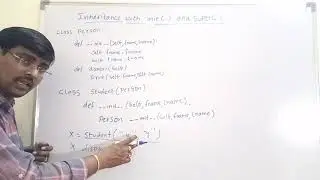 Inheritance with init() and super()
class Person
def __init__(self, fname, lname)
self.fname = fname
self.lname = lname
def display(self)
print(self.fname, self.lname)
class Student(Person)
def __init__(self, fname, lname)
Person.__init__(self, fname, lname)
X = Student("
X.